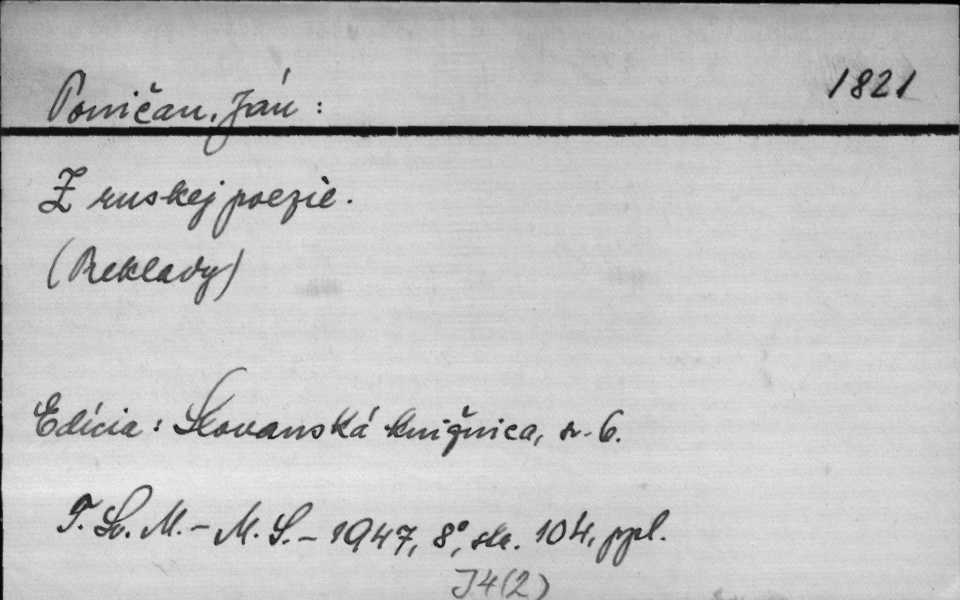 1821
Poničan, Ján:
Z ruskej poezie.
(Preklady)
Edícia: Slovanská knižnica, sv. 6.
T. Sv. M. - M. S. - 1947, 8°, str. 104, ppl.
J4(2)